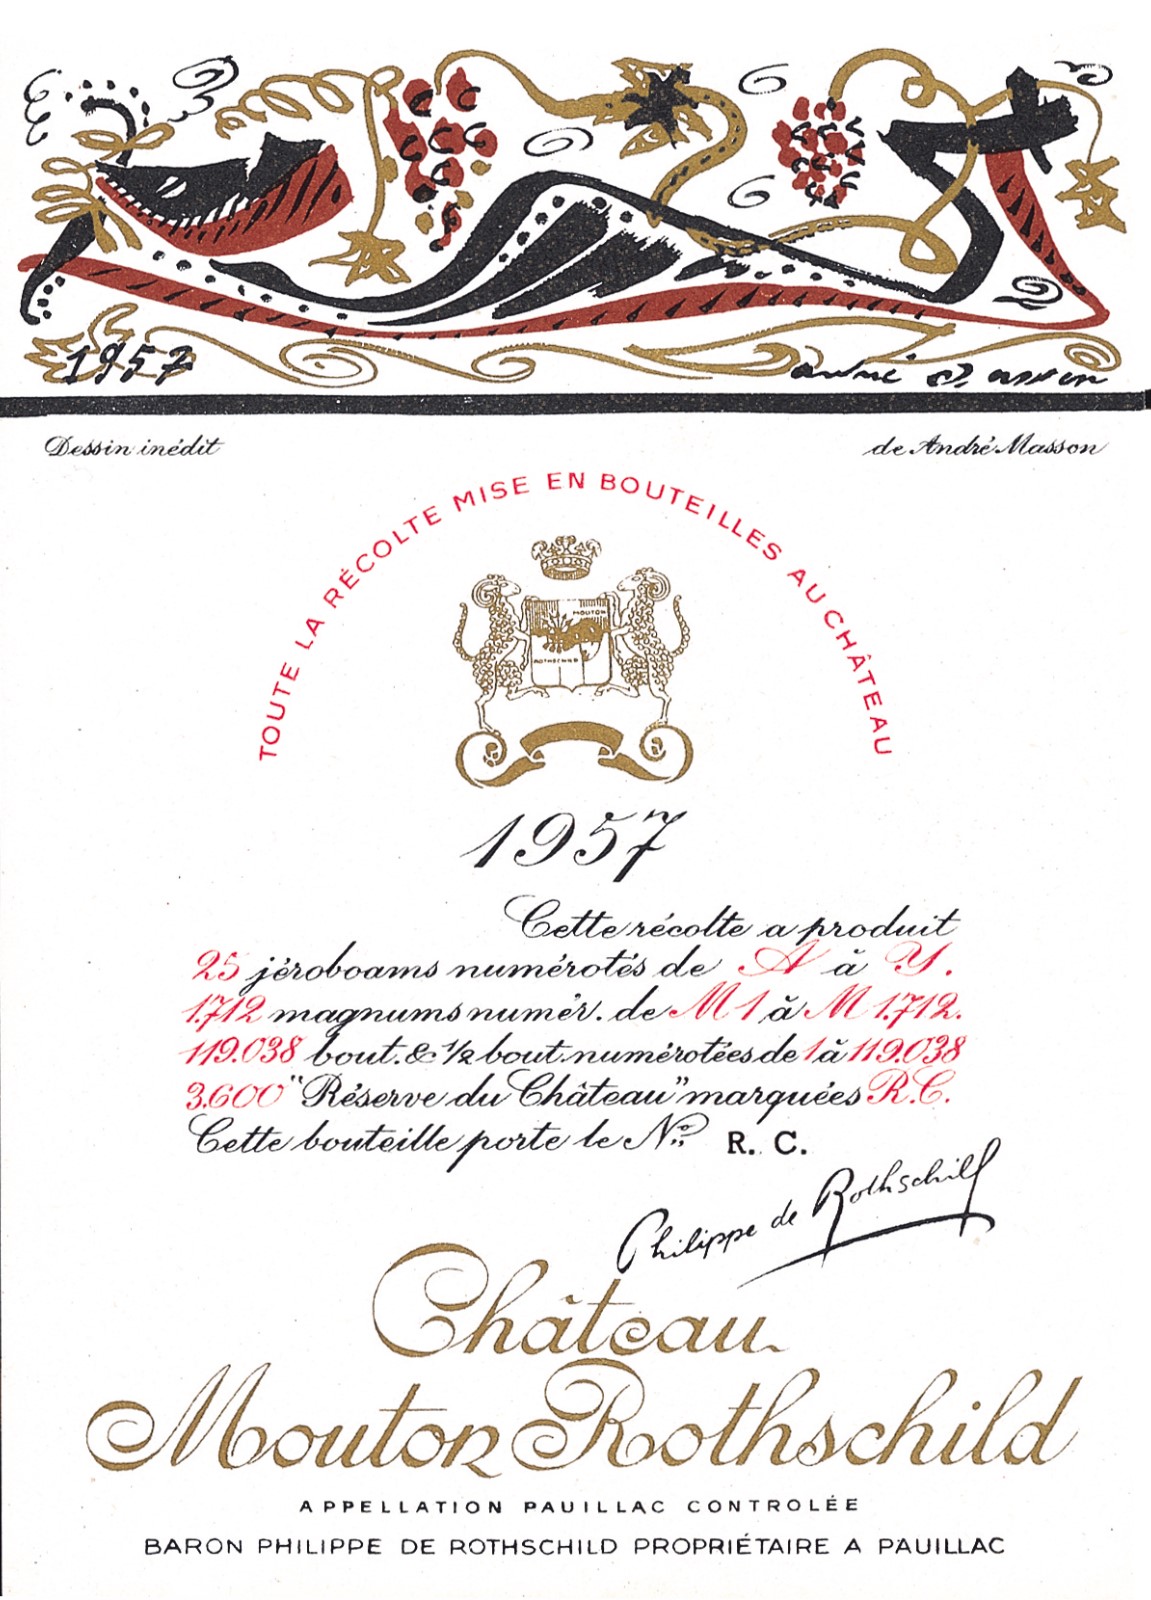 1957
andré Masson
Dessin inédit
de André Masson
TOUTE LA RÉCOLTE MISE EN BOUTEILLES AU CHÂTEAU
MOUTON
ROTHSCHILD
1957
Cette récolte a produit
25 jéroboams numérotés de A à Y.
1.712 magnums numér. de M 1 à M 1.712.
119.038 bout. & ½ bout. numérotées de 1 à 119.038
3.600 "Réserve du Château" marquées R.C.
Cette bouteille porte le Nº R. C.
Philippe de Rothschild
Château
Mouton Rothschild
APPELLATION PAUILLAC CONTROLÉE
BARON PHILIPPE DE ROTHSCHILD PROPRIÉTAIRE A PAUILLAC